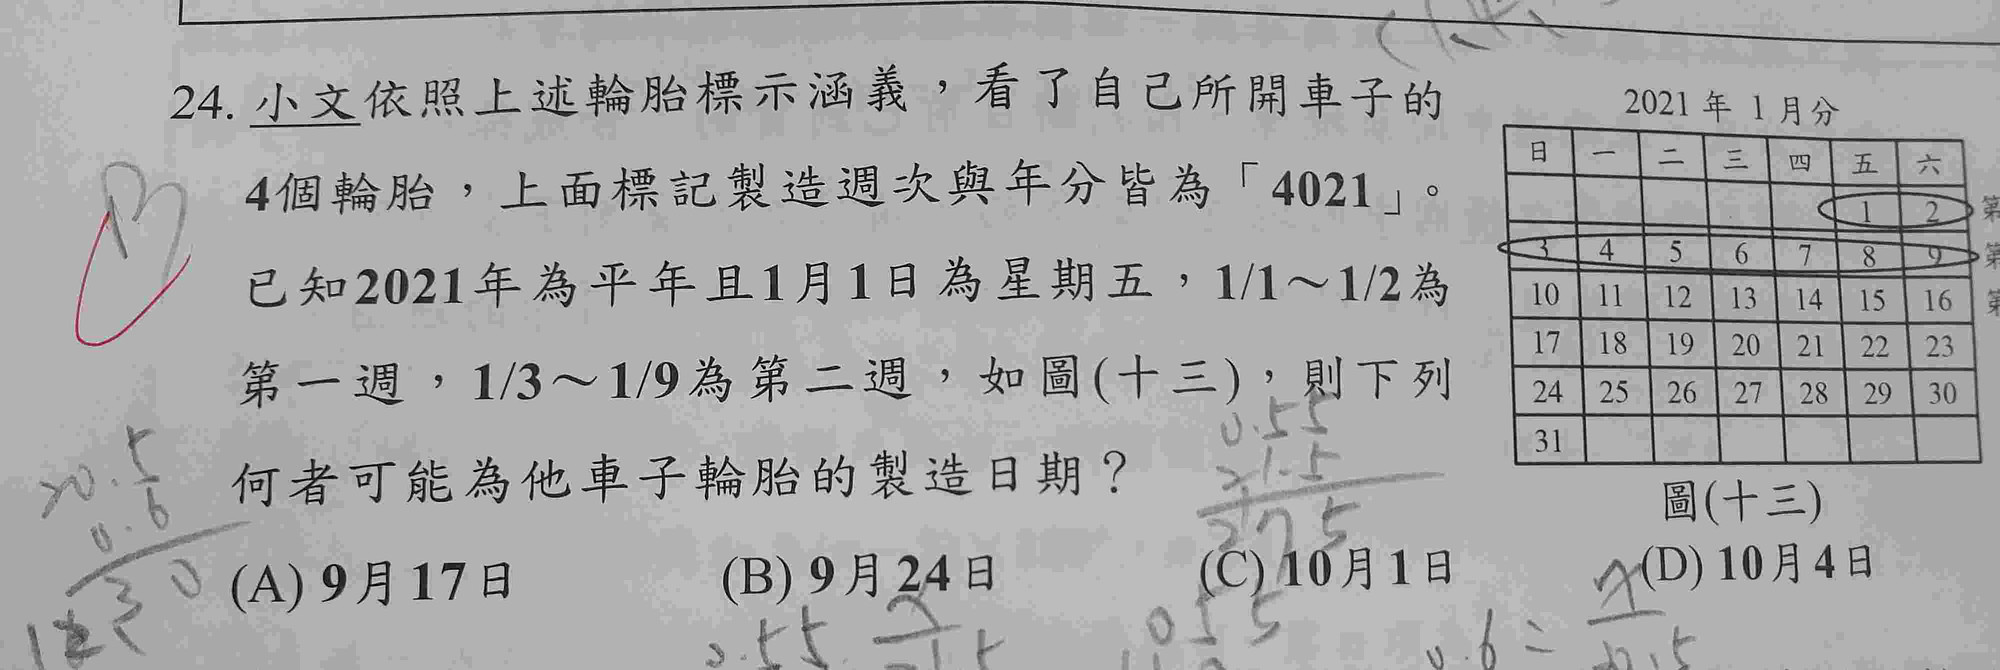 24. 小文依照上述輪胎標示涵義，看了自己所開車子的
4個輪胎，上面標記製造週次與年分皆為「4021」。
已知2021年為平年且1月1日為星期五，1/1～1/2為
第一週，1/3～1/9為第二週，如圖(十三)，則下列
何者可能為他車子輪胎的製造日期？
(A) 9月17日 (B) 9月24日 (C) 10月1日 (D) 10月4日
2021 年 1 月分
日 一 二 三 四 五 六
1 2 第
3 4 5 6 7 8 9 第
10 11 12 13 14 15 16 第
17 18 19 20 21 22 23
24 25 26 27 28 29 30
31
圖(十三)
B
0.55
×1.5
275
0.6
0.55
055
0.6=